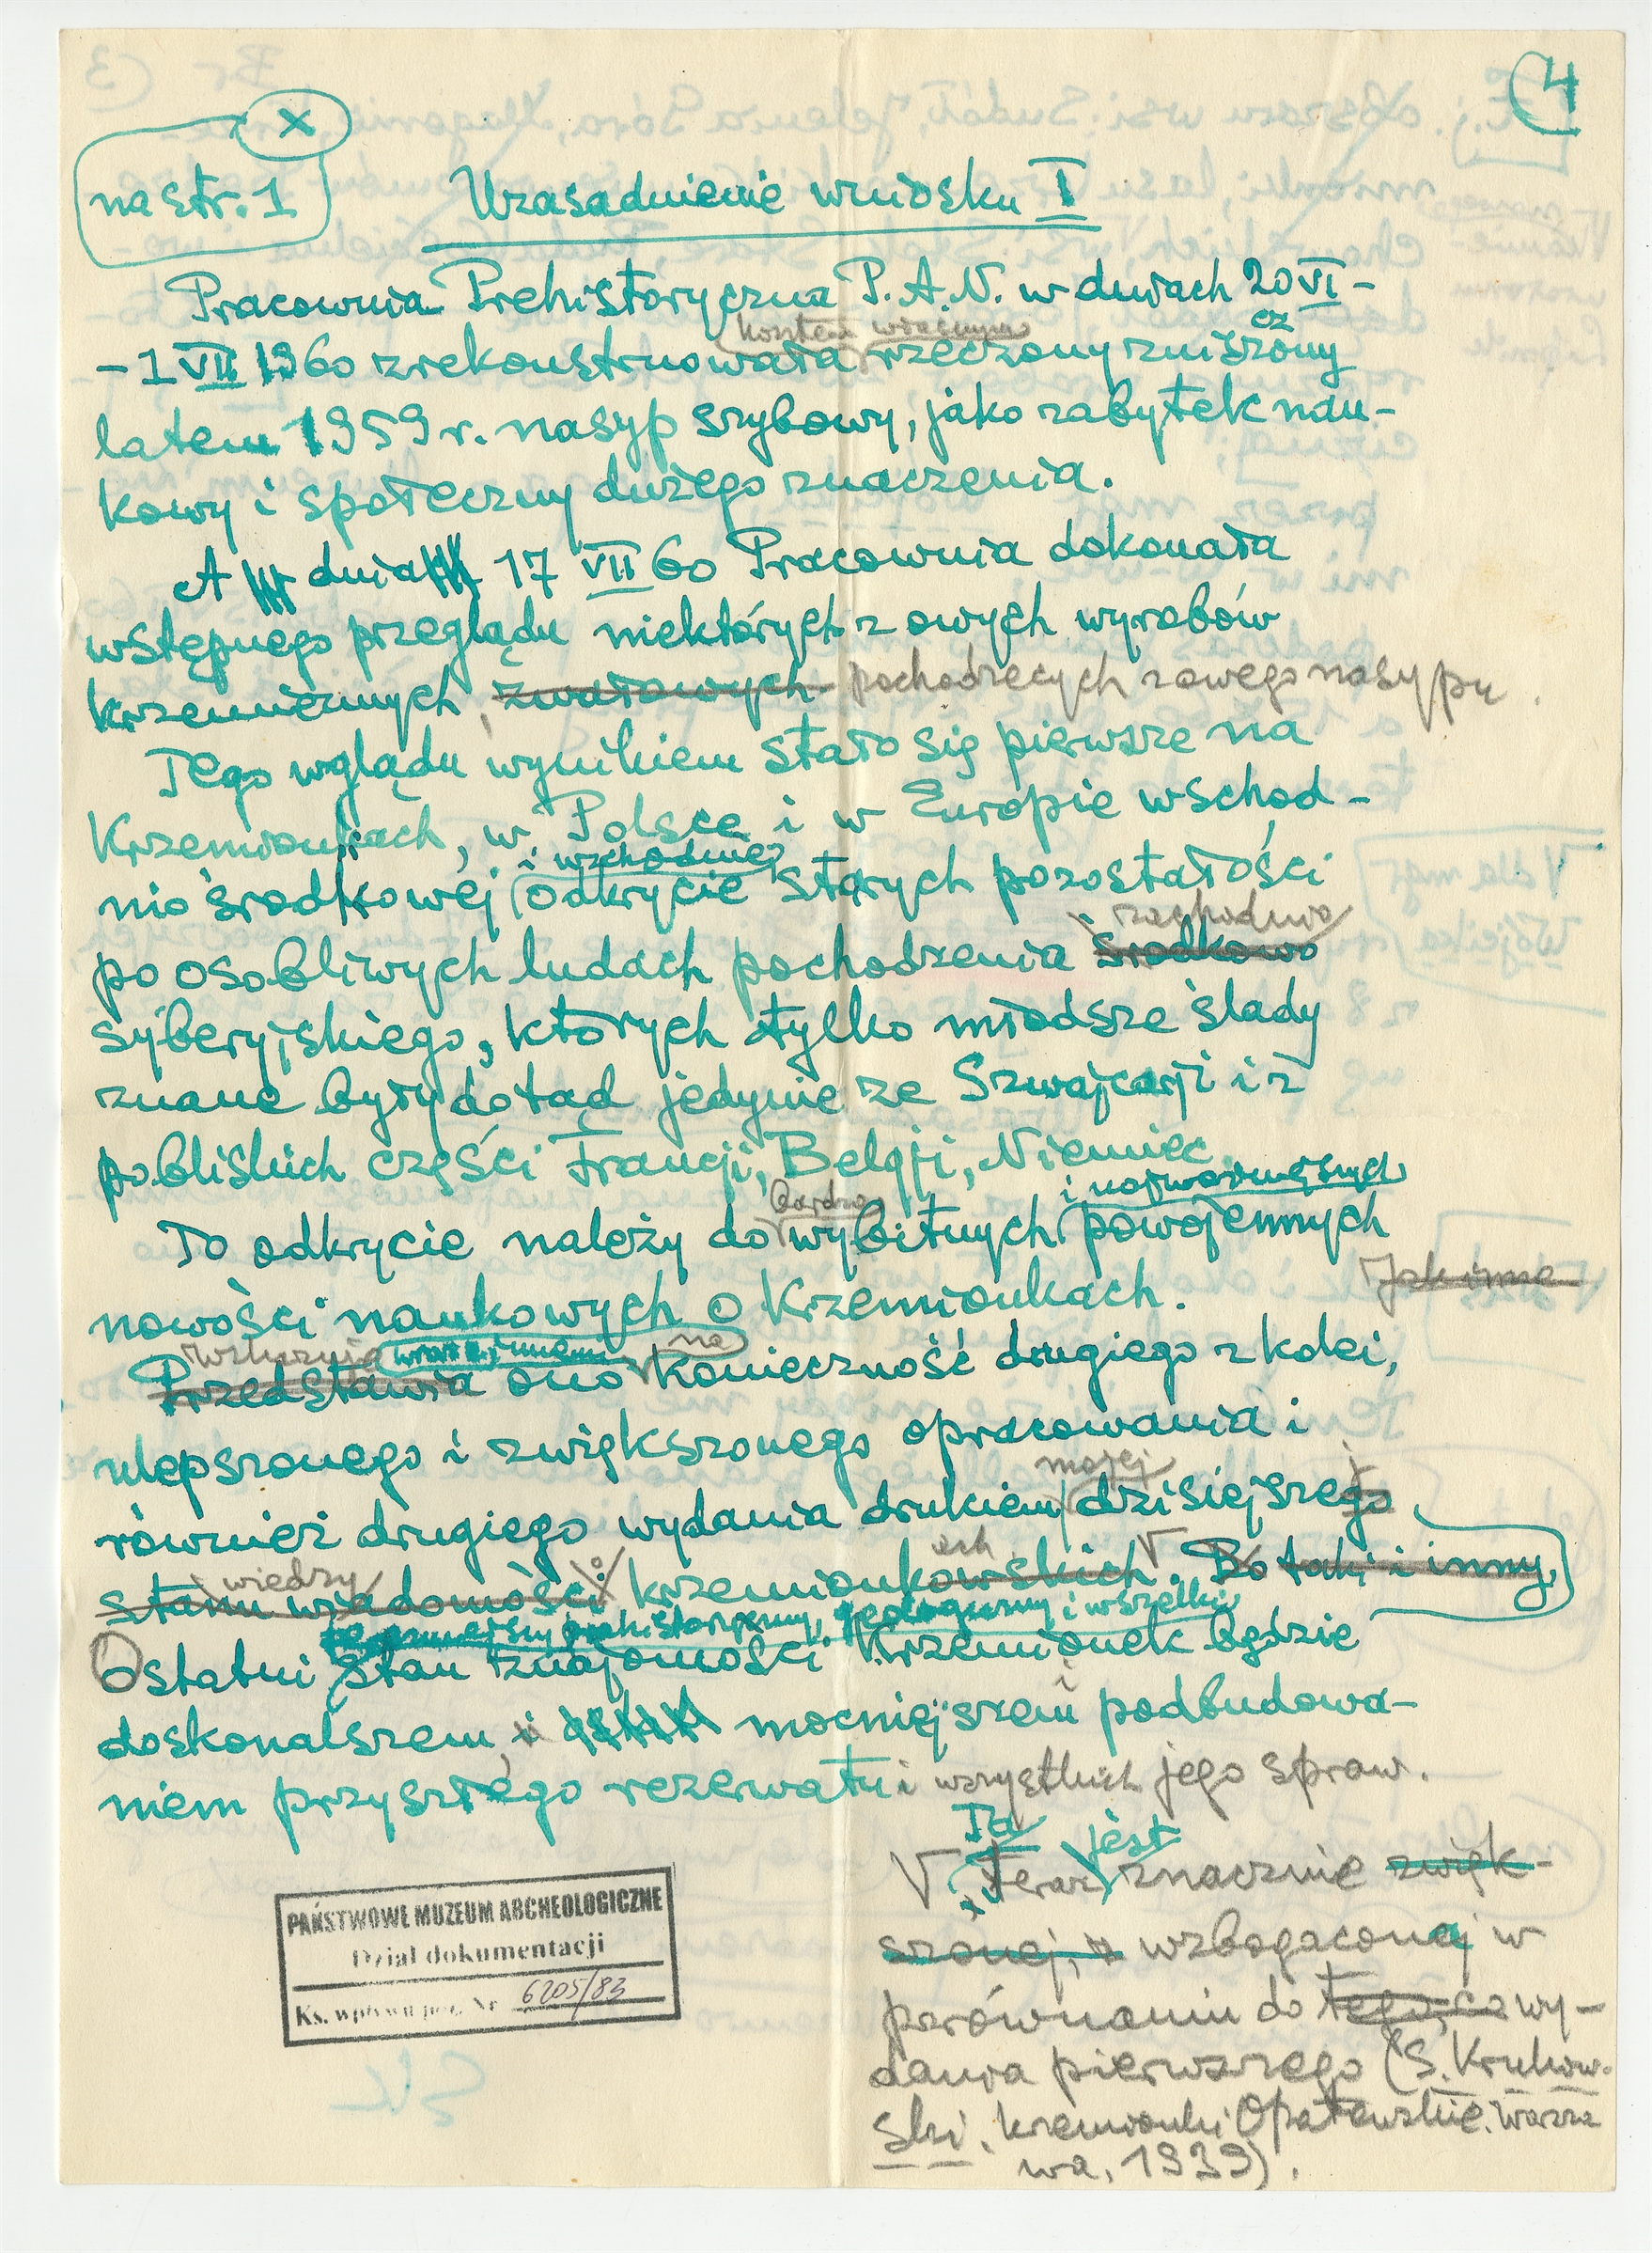 4
x
na str. 1
Uzasadnienie wniosku I
Pracownia Prehistoryczna P. A. N. w dniach 20 VI -
kosztem własnym
- 1 VII 1960 zrekonstruowała rzeczony zniszczony
latem 1959 r. nasyp szybowy, jako zabytek nau-
kowy i społeczny dużego znaczenia.
A dnia 17 VII 60 Pracownia dokonała
wstępnego przeglądu niektórych z owych wyrobów
krzemiennych, zwałowych pochodzących z owego nasypu.
Tego wglądu wynikiem stało się pierwsze na
Krzemionkach, w Polsce i w Europie wschod-
i wschodniej
nio środkowej odkrycie starych pozostałości
zachodnio
po osobliwych ludach pochodzenia środkowo
syberyjskiego, których tylko młodsze ślady
znane były dotąd jedynie ze Szwajcarji i z
pobliskich części Francji, Belgji, Niemiec.
bardzo i najważniejszych
To odkrycie należy do wybitnych powojennych
Jak inne
nowości naukowych o Krzemionkach.
wraz z innemi na
Przedstawia ono konieczność drugiego z kolei,
ulepszonego i zwiększonego opracowania i
mojej
również drugiego wydania drukiem dzisiejszego
wiedzy o ach V
stanu wiadomości krzemionkowskich. Bo taki i inny,
prehistoryczny, geologiczny i wszelki
Ostatni stan znajomości Krzemionek będzie
doskonalszem, i mocniejszem podbudowa-
niem przyszłego rezerwatu i wszystkich jego spraw.
Ta jest
V teraz znacznie zwięk-
szonej, wzbogaconej w
porównaniu do tego, co wy-
dania pierwszego (S. Krukow-
ski. Krzemionki Opatowskie. Warsza
wa, 1939).
PAŃSTWOWE MUZEUM ARCHEOLOGICZNE
Dział dokumentacji
Ks. wpływu poz. Nr 6205/83